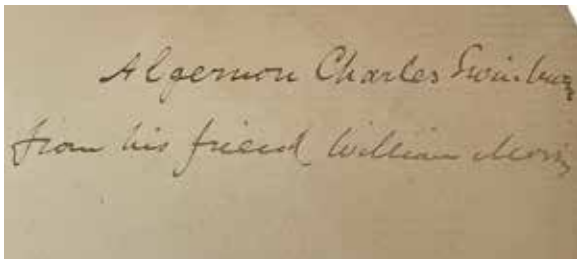 Algernon Charles Swinburne
from his friend William Morris